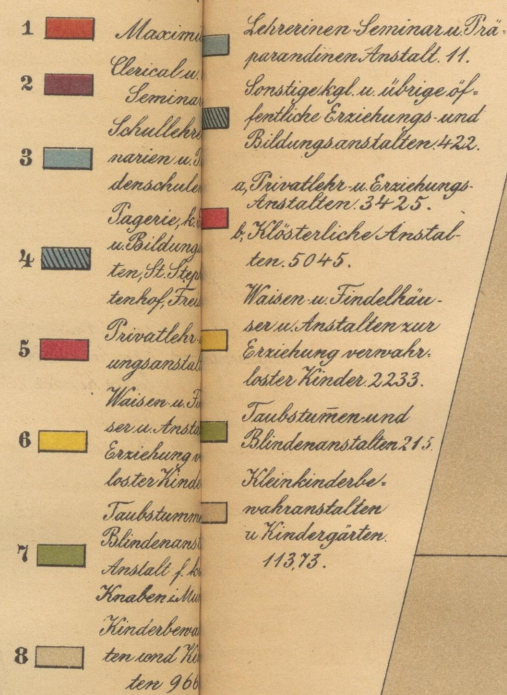 1 Maximi
2 Clerical u.
Semina
Schullehr
3 narien u.
denschule
Pagerie, k.
4 u. Bildung
ten, St. Step
tenhof, Frei
5 Privatlehr
ungsanstal
Waisen u. Fi
6 ser u. Ansta
Erziehung v
loster Kinde
Taubstumme
7 Blindenanst
Anstalt f. k
Knaben i. Mü
Kinderbewa
8 ten und Ki
ten 966
Lehrerinen-Seminar u. Prä-
parandinen Anstalt. 11.
Sonstige kgl. u. übrige öf-
fentliche Erziehungs- und
Bildungsanstalten. 422.
a, Privatlehr- u. Erziehungs-
Anstalten. 3425.
b, Klösterliche Anstal-
ten. 5045.
Waisen u. Findelhäu-
ser u. Anstalten zur
Erziehung verwahr-
loster Kinder. 2233.
Taubstum̅en und
Blindenanstalten 215.
Kleinkinderbe-
wahranstalten
u Kindergärten.
11373.